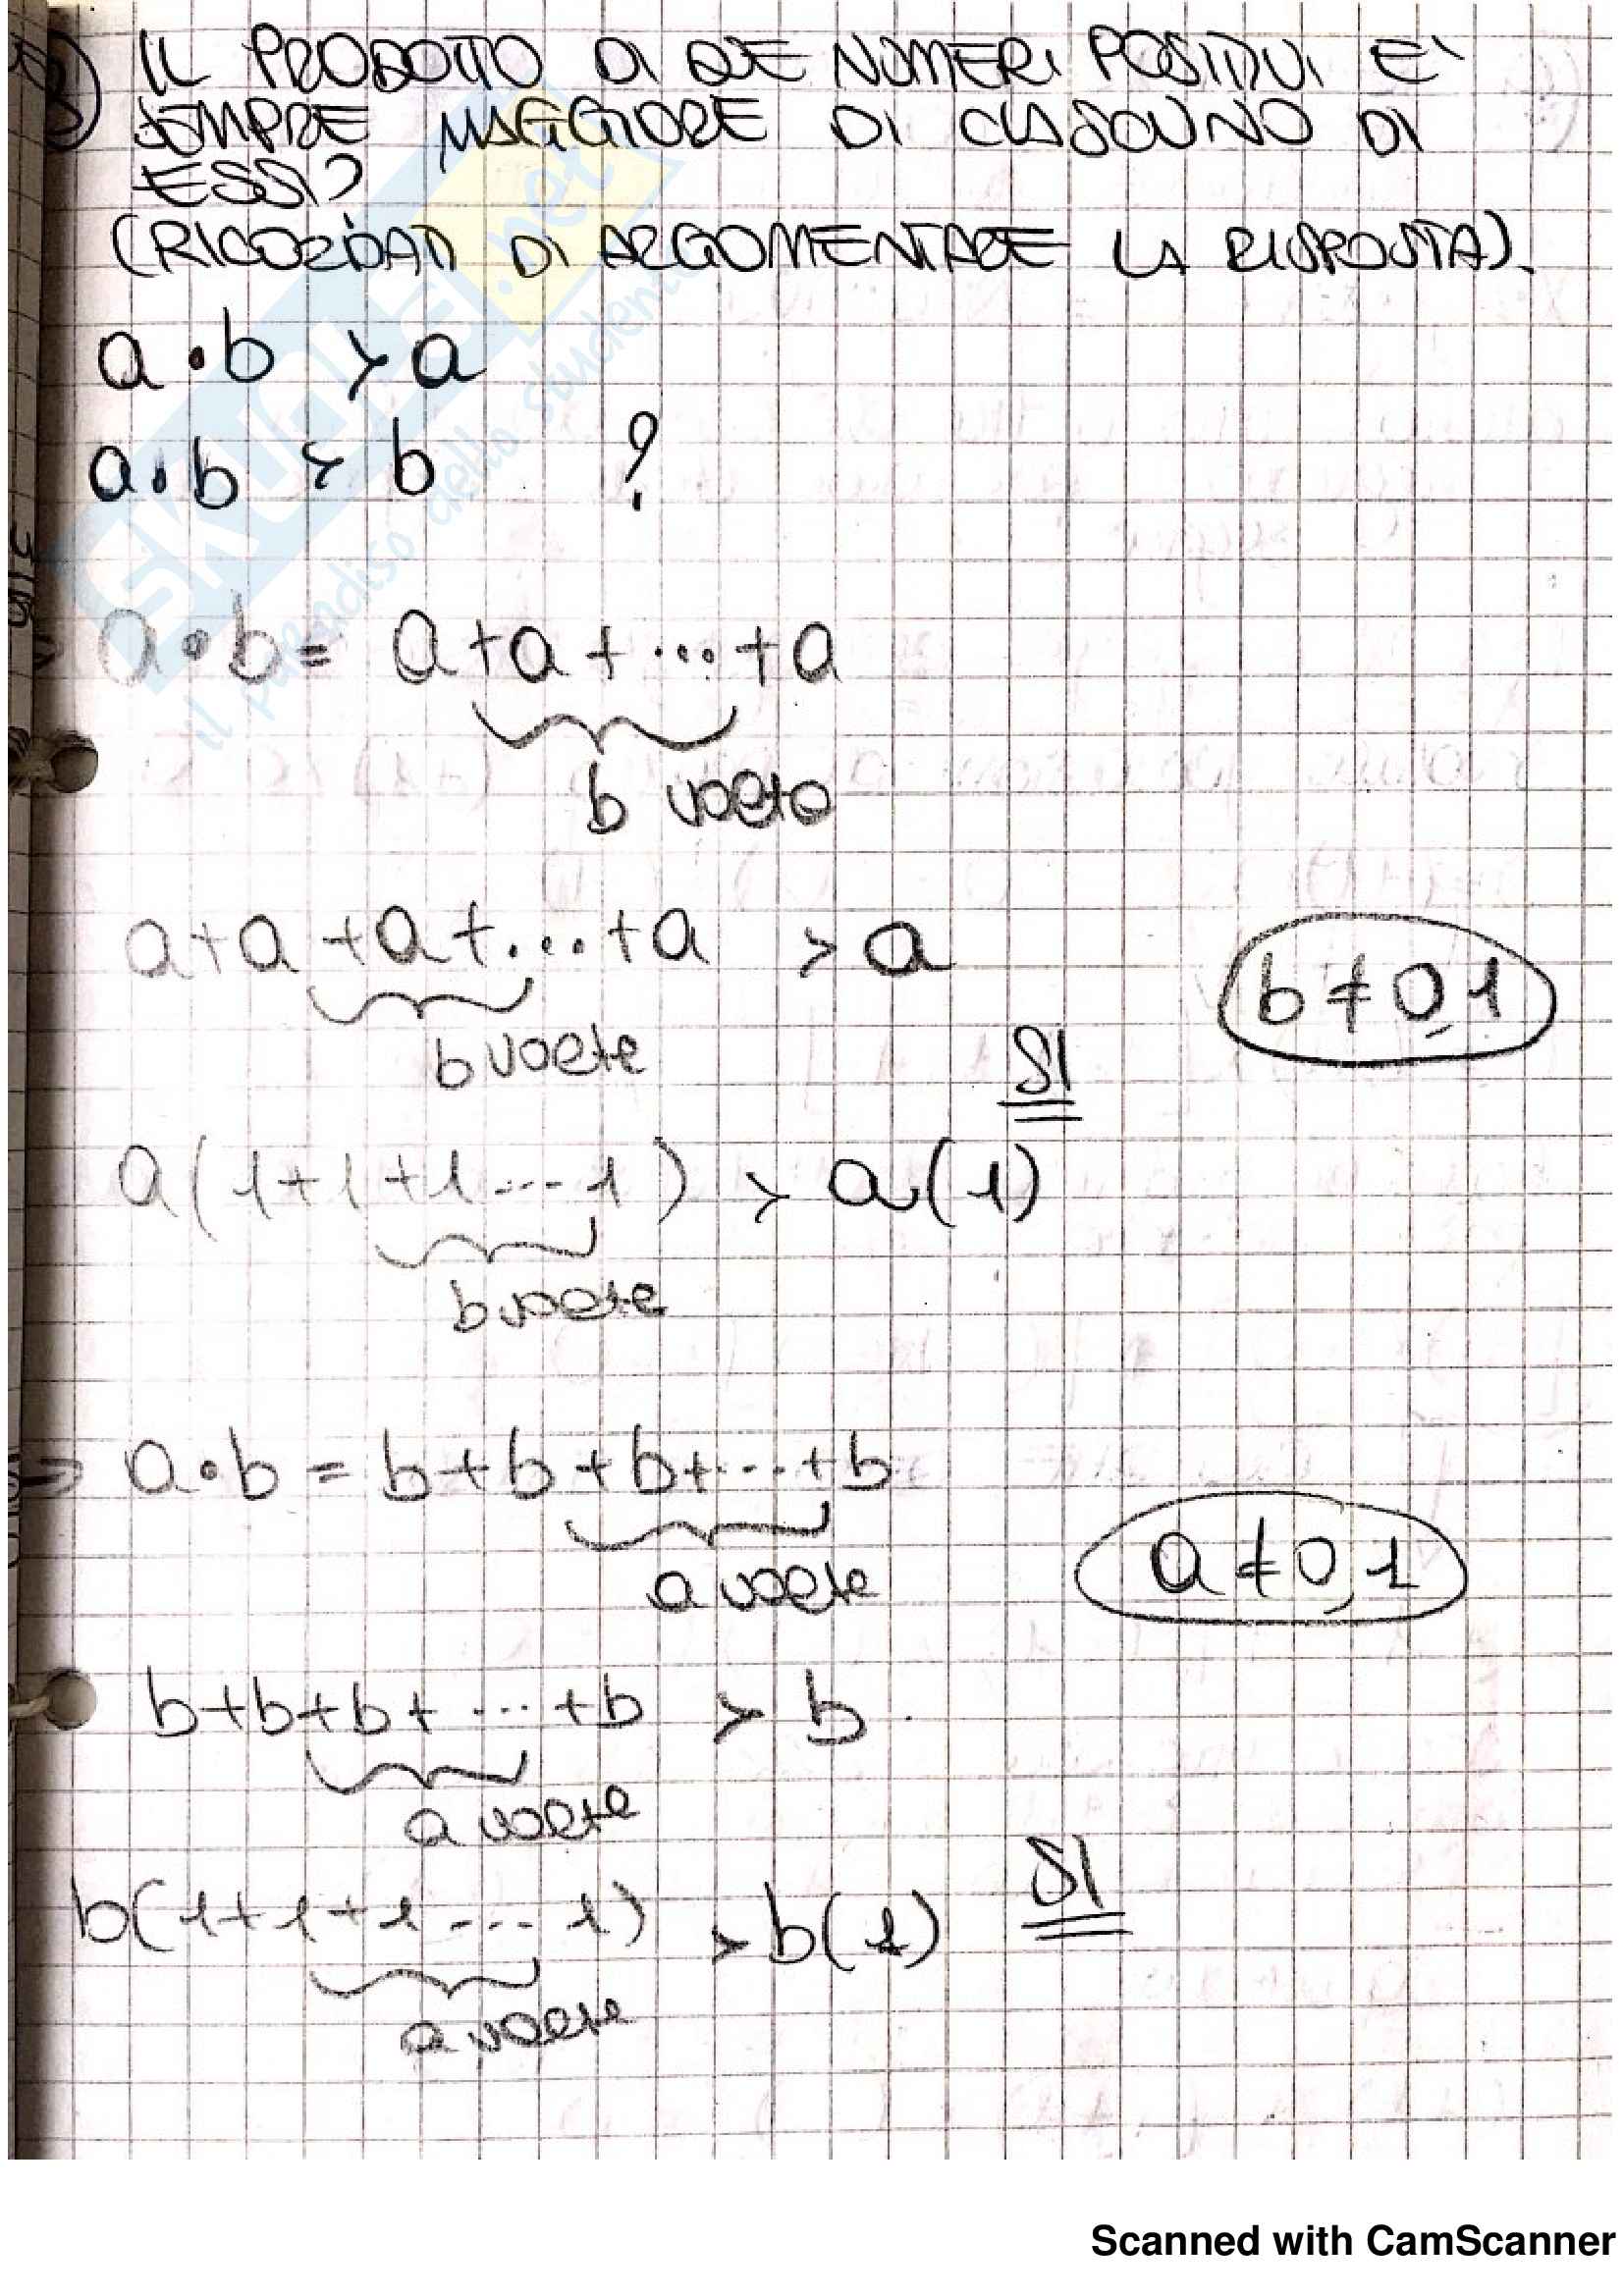 8) IL PRODOTTO DI DUE NUMERI POSITIVI E'
SEMPRE MAGGIORE DI CIASCUNO DI
ESSI?
(RICORDATI DI ARGOMENTARE LA RISPOSTA).
a·b > a
a·b > b ?
a·b = a+a+...+a
b volte
a+a+a+...+a > a
b ≠ 0,1
b volte
SI
a(1+1+1...1) > a(1)
b volte
=> a·b = b+b+b+...+b
a volte
a ≠ 0,1
b+b+b+...+b > b.
a volte
b(1+1+1...1) > b(1) SI
a volte
skuola.net
il paradiso dello studente
Scanned with CamScanner